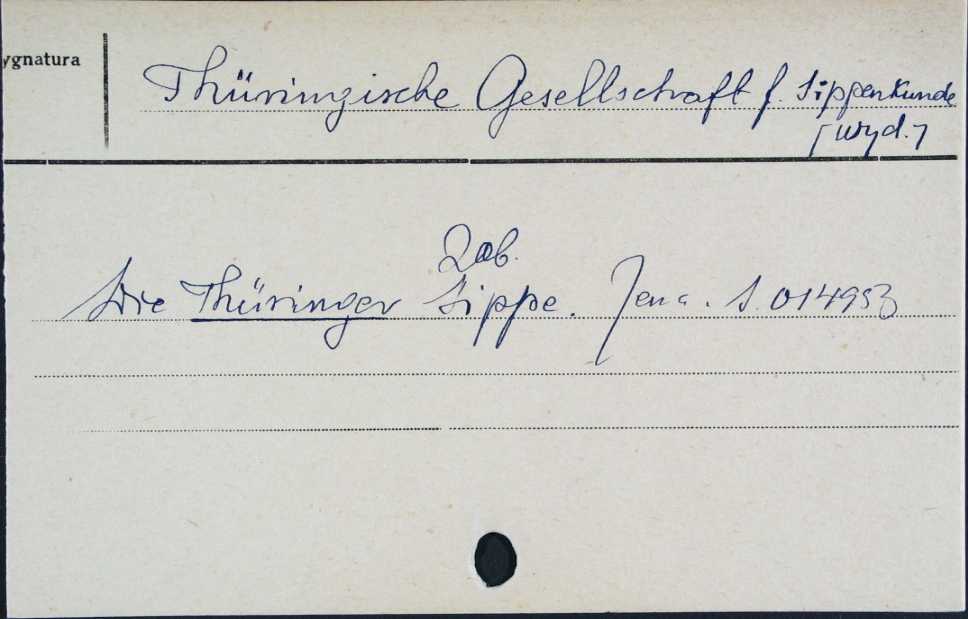 ygnatura
Thüringische Gesellschaft f. Sippenkunde
[wyd.]
Zob.
Die Thüringer Sippe. Jena. S. 014953